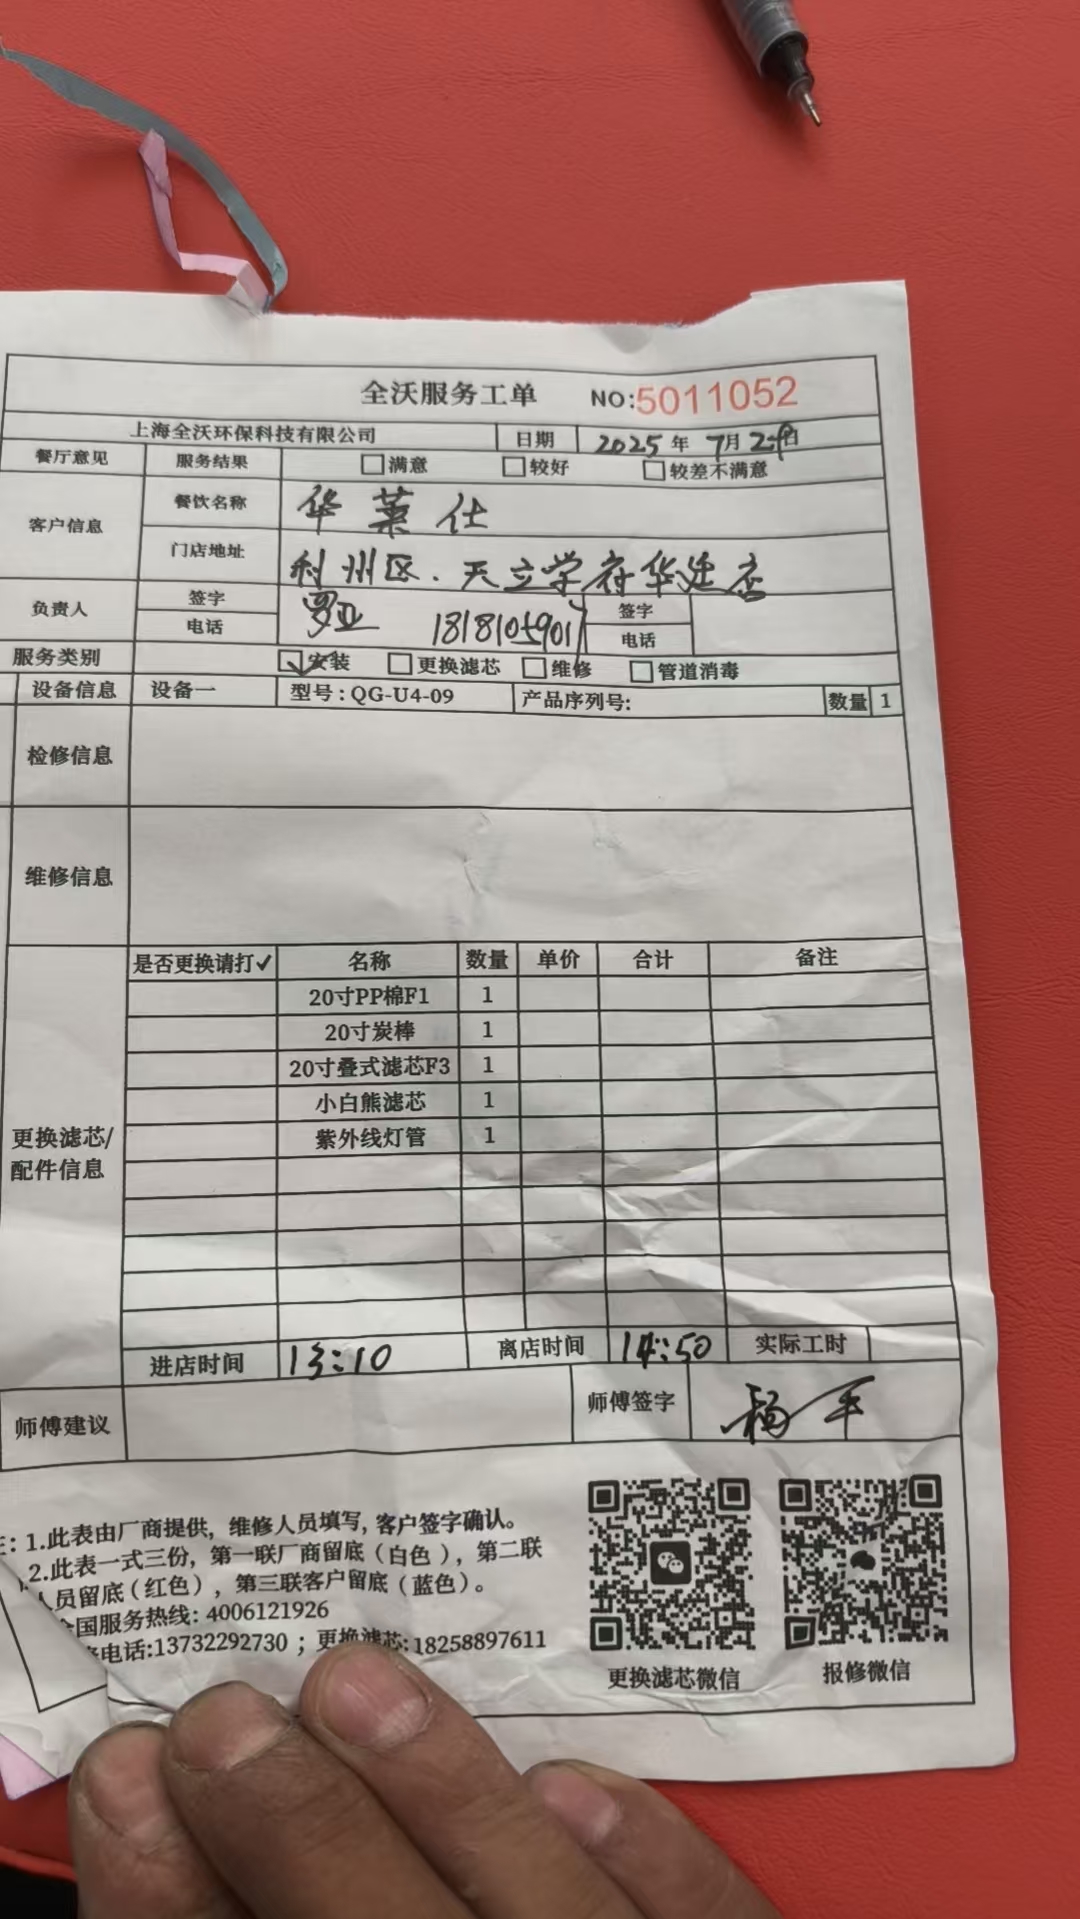 全沃服务工单 NO:5011052
上海全沃环保科技有限公司 日期 2025年 7月2 日
餐厅意见 服务结果 □满意 □较好 □较差不满意
客户信息 餐饮名称 华莱仕
门店地址 利州区.天立学府华建店
负责人 签字 罗亚 签字
电话 18181059017 电话
服务类别 ☑安装 □更换滤芯 □维修 □管道消毒
设备信息 设备一 型号:QG-U4-09 产品序列号: 数量 1
检修信息
维修信息
更换滤芯/配件信息
是否更换请打✓ 名称 数量 单价 合计 备注
20寸PP棉F1 1
20寸炭棒 1
20寸叠式滤芯F3 1
小白熊滤芯 1
紫外线灯管 1
进店时间 13:10 离店时间 14:50 实际工时
师傅建议 师傅签字 杨平
:1.此表由厂商提供, 维修人员填写, 客户签字确认。
2.此表一式三份, 第一联厂商留底(白色), 第二联
人员留底(红色), 第三联客户留底(蓝色)。
全国服务热线: 4006121926
电话:13732292730 ; 更换滤芯:18258897611
更换滤芯微信 报修微信